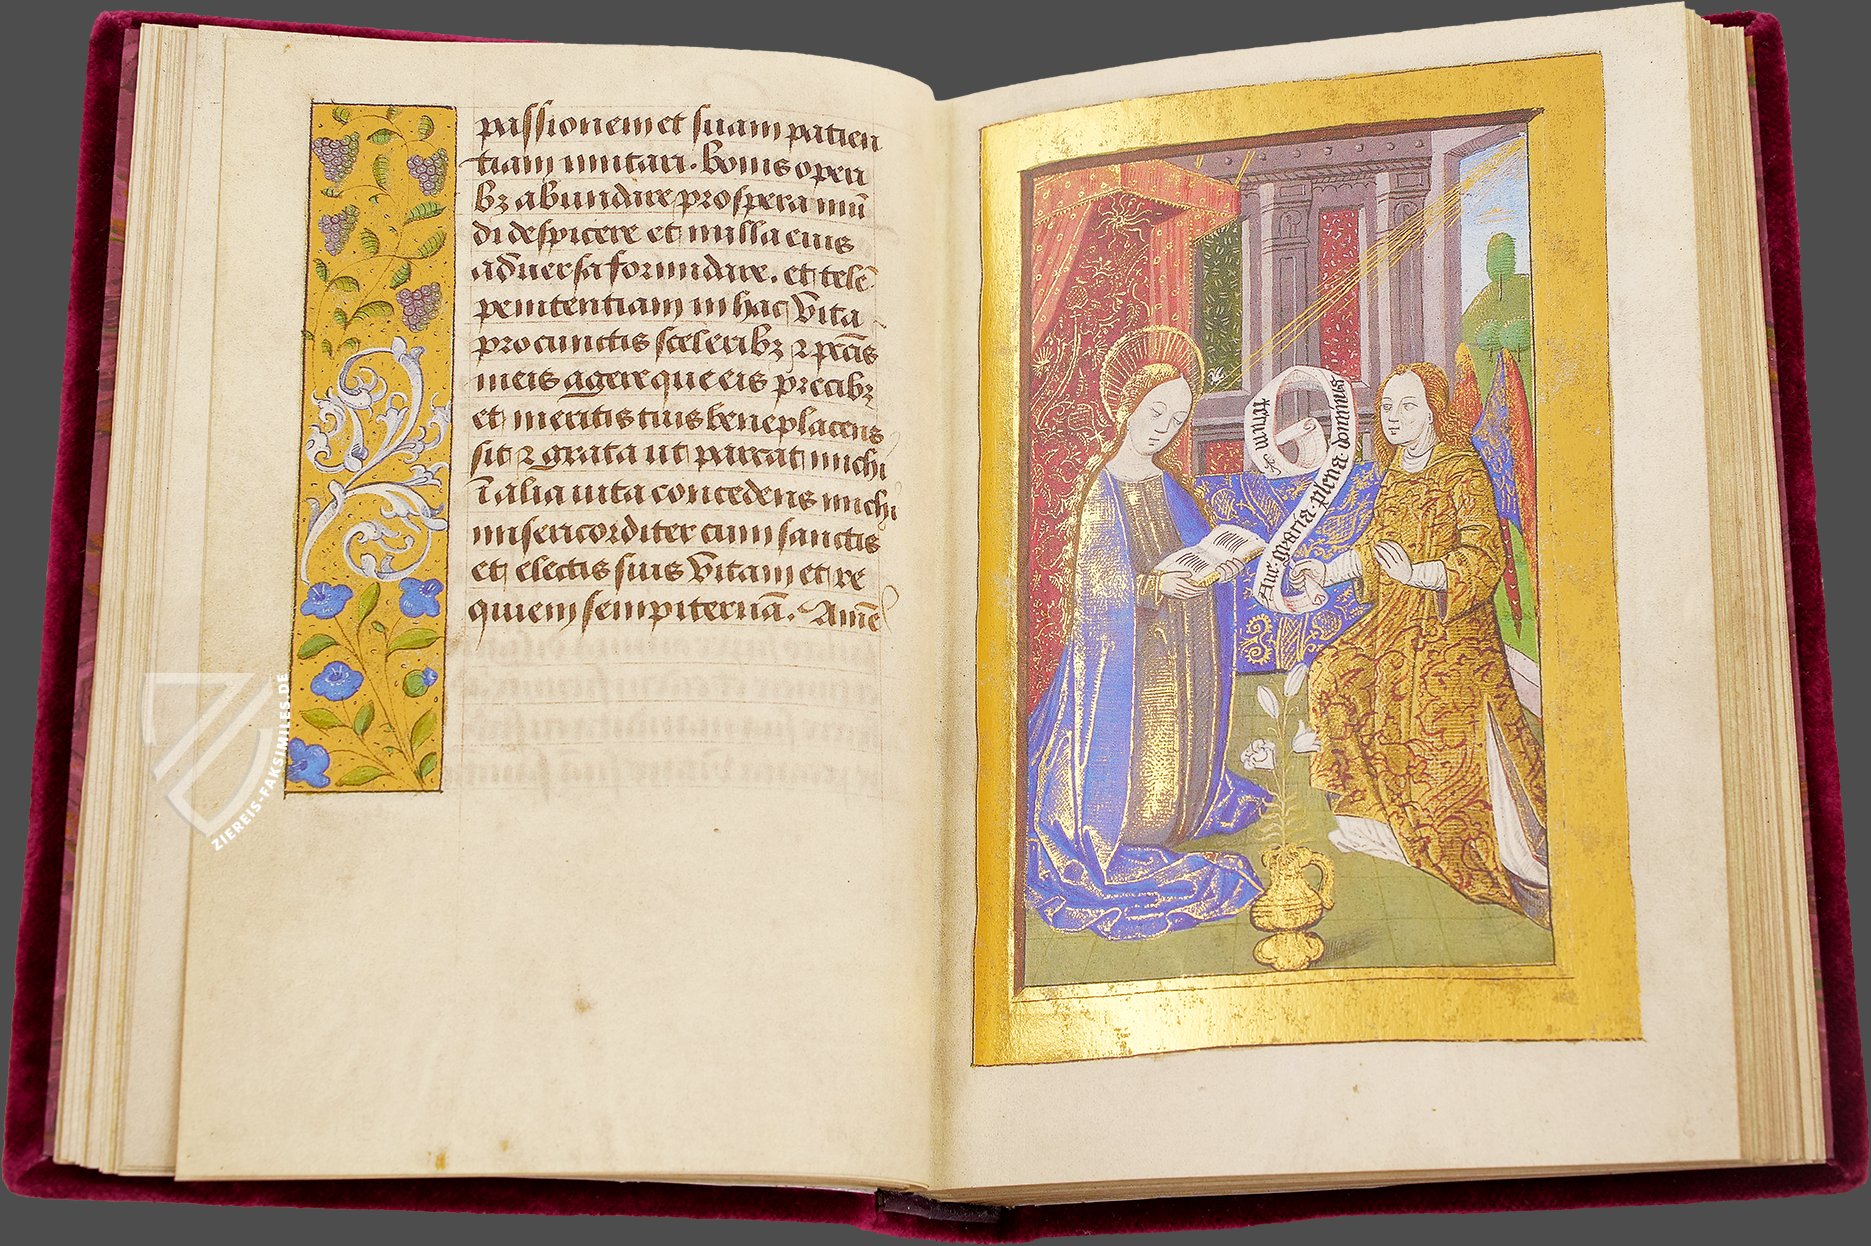 passionem et suam patien
tiam imitari. bonis operi
bz abundare prospera mū
di despicere et nulla eius
aduersa formidare. et talē
penitentiam in hac vita
pro cunctis sceleribz ⁊ pctīs
meis agere que eis precibz
et meritis tuis beneplacens
sit ⁊ grata ut parcat michi
ī alia uita concedens michi
misericorditer cum sanctis
et electis suis vitam et re
quiem sempiternā. Amē
Aue. gracia. plena. dominus
tecum
ZIEREIS-FAKSIMILES.DE